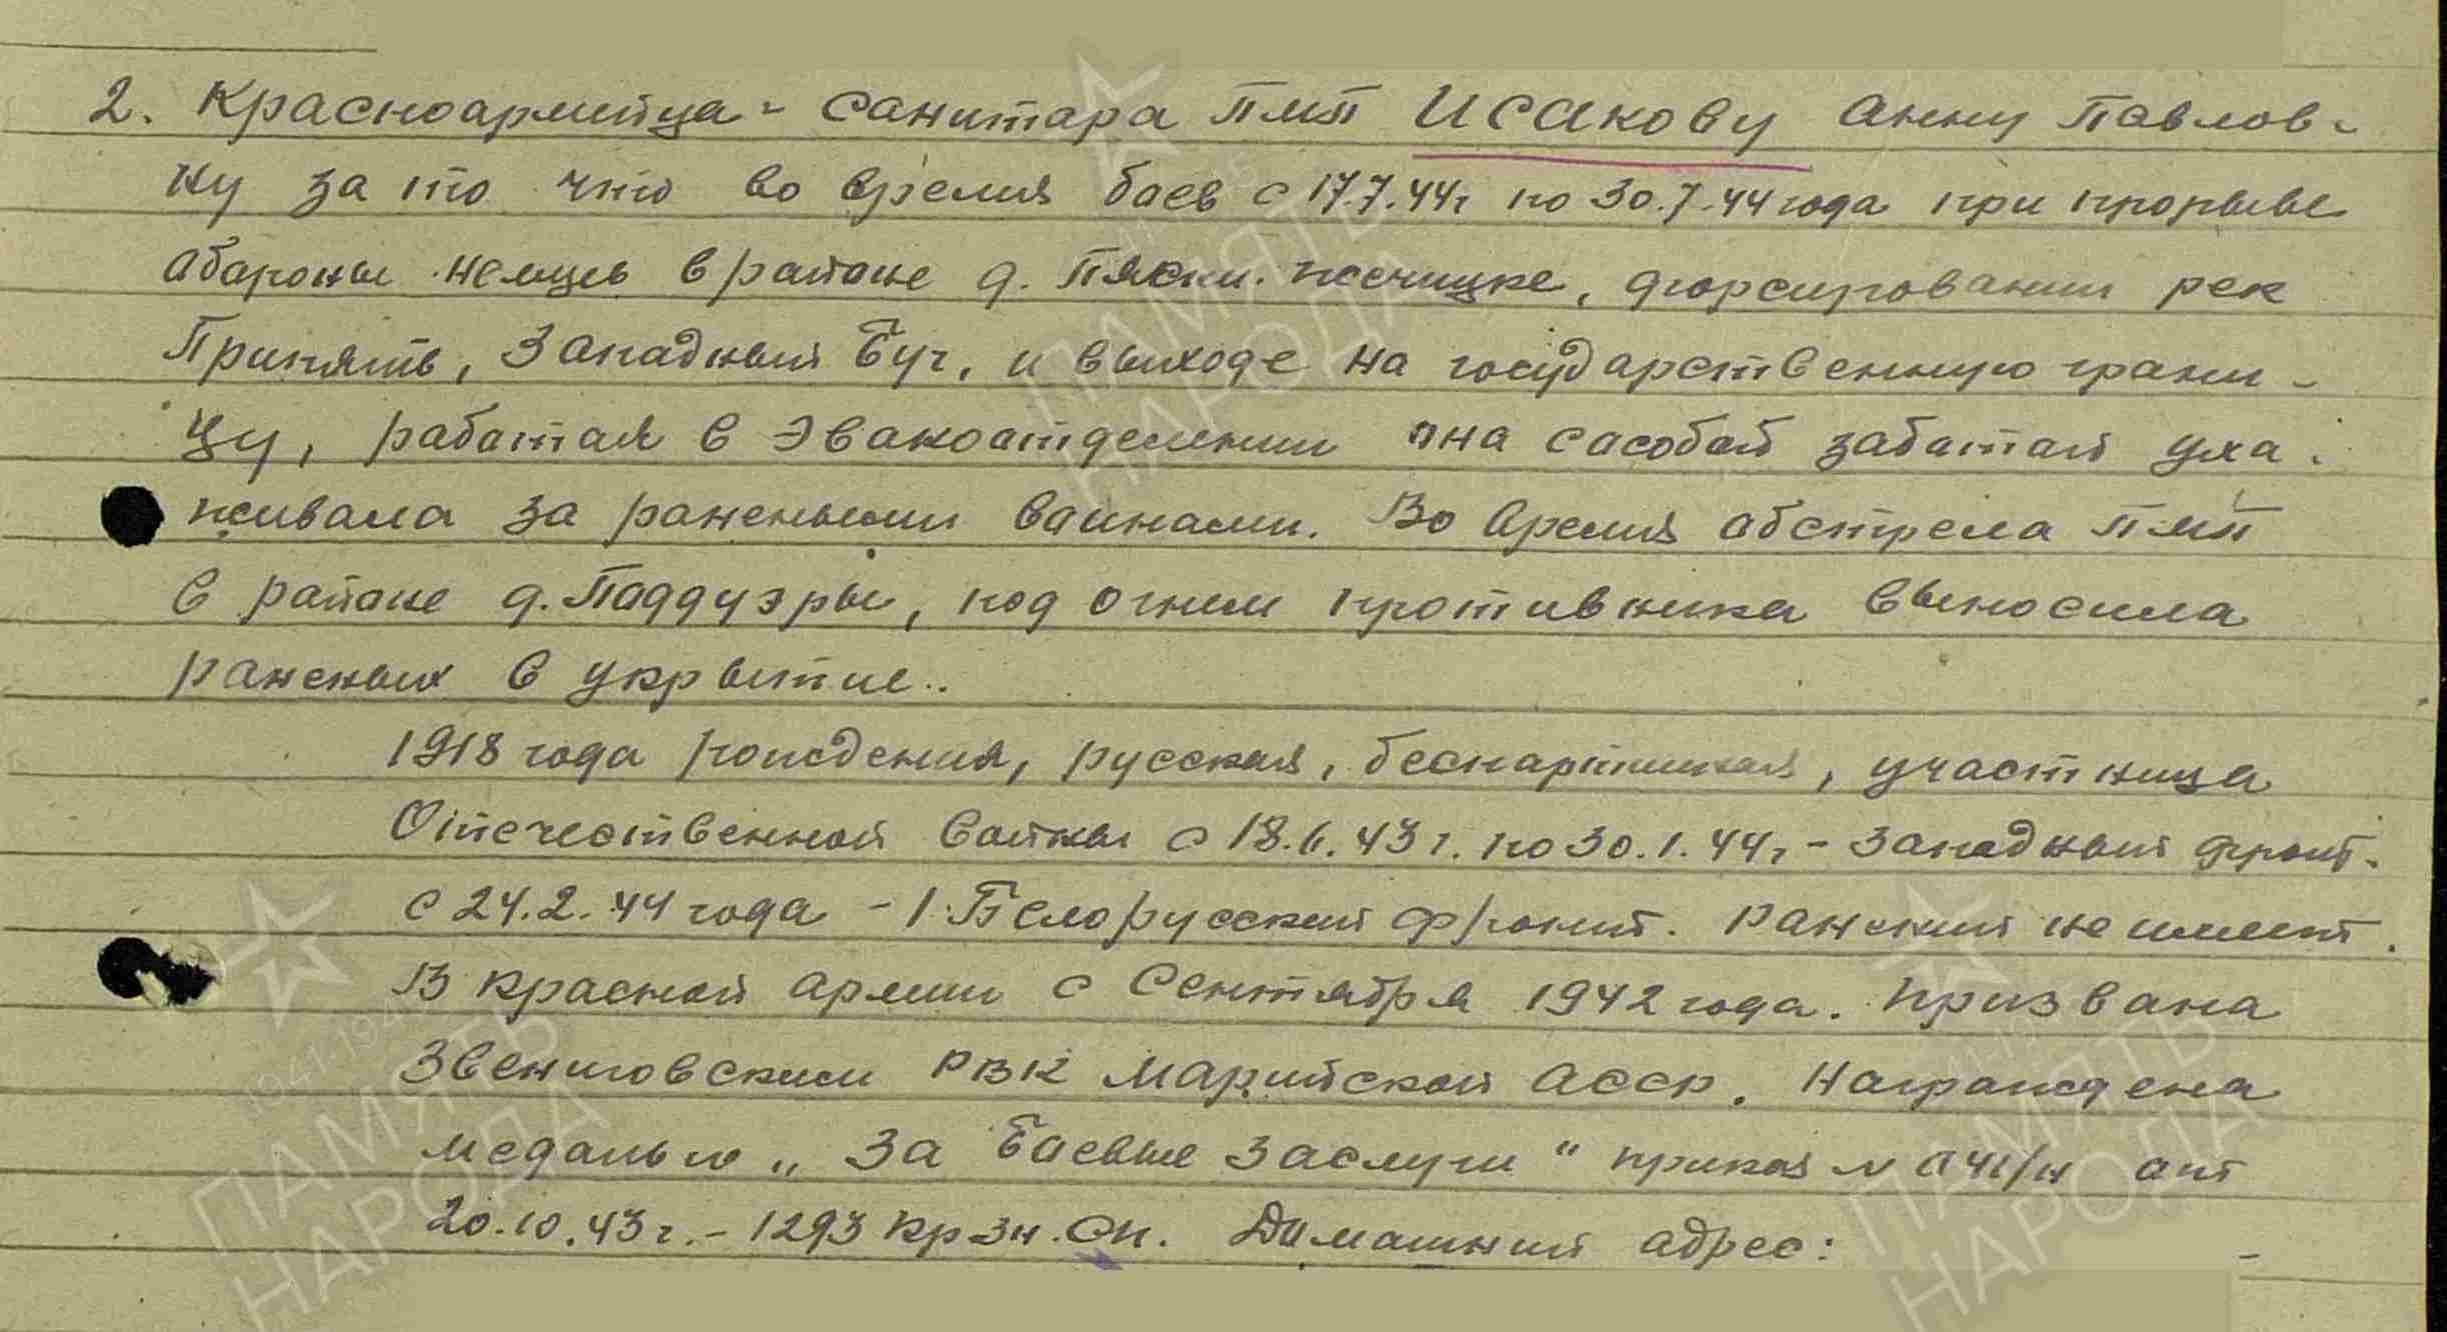 2. Красноармейца - санитара ПМП Исакову Анну Павлов-
ну за то что во время боев с 17.7.44г по 30.7.44 года при прорыве
обароны немцев в районе д. Пяски. , форсировании рек
Припять, Западный Буг, и выходе на государственную грани-
цу, работая в эвакоотделении она с особой заботай уха-
живала за ранеными воинами. Во время обстрела ПМП
в районе д. Поддуэры, под огнем противника выносила
раненых в укрытие.
1918 года рождения, русская, беспартийная, участница
Отечественной войны с 18.6.43 г. по 30.1.44г - Западный фронт.
с 24.2.44 года - 1 Белорусский фронт. Ранений не имеет.
В Красной армии с Сентября 1942 года. Призвана
Звениговским РВК Марийской АССР. Награждена
медалью „За Боевые Заслуги“ приказ N от
20.10.43г. - 1293 Кр Зн. СП. Домашний адрес:
ПАМЯТЬ
НАРОДА
1941-1945
ПАМЯТЬ
НАРОДА
ПАМЯТЬ
НАРОДА